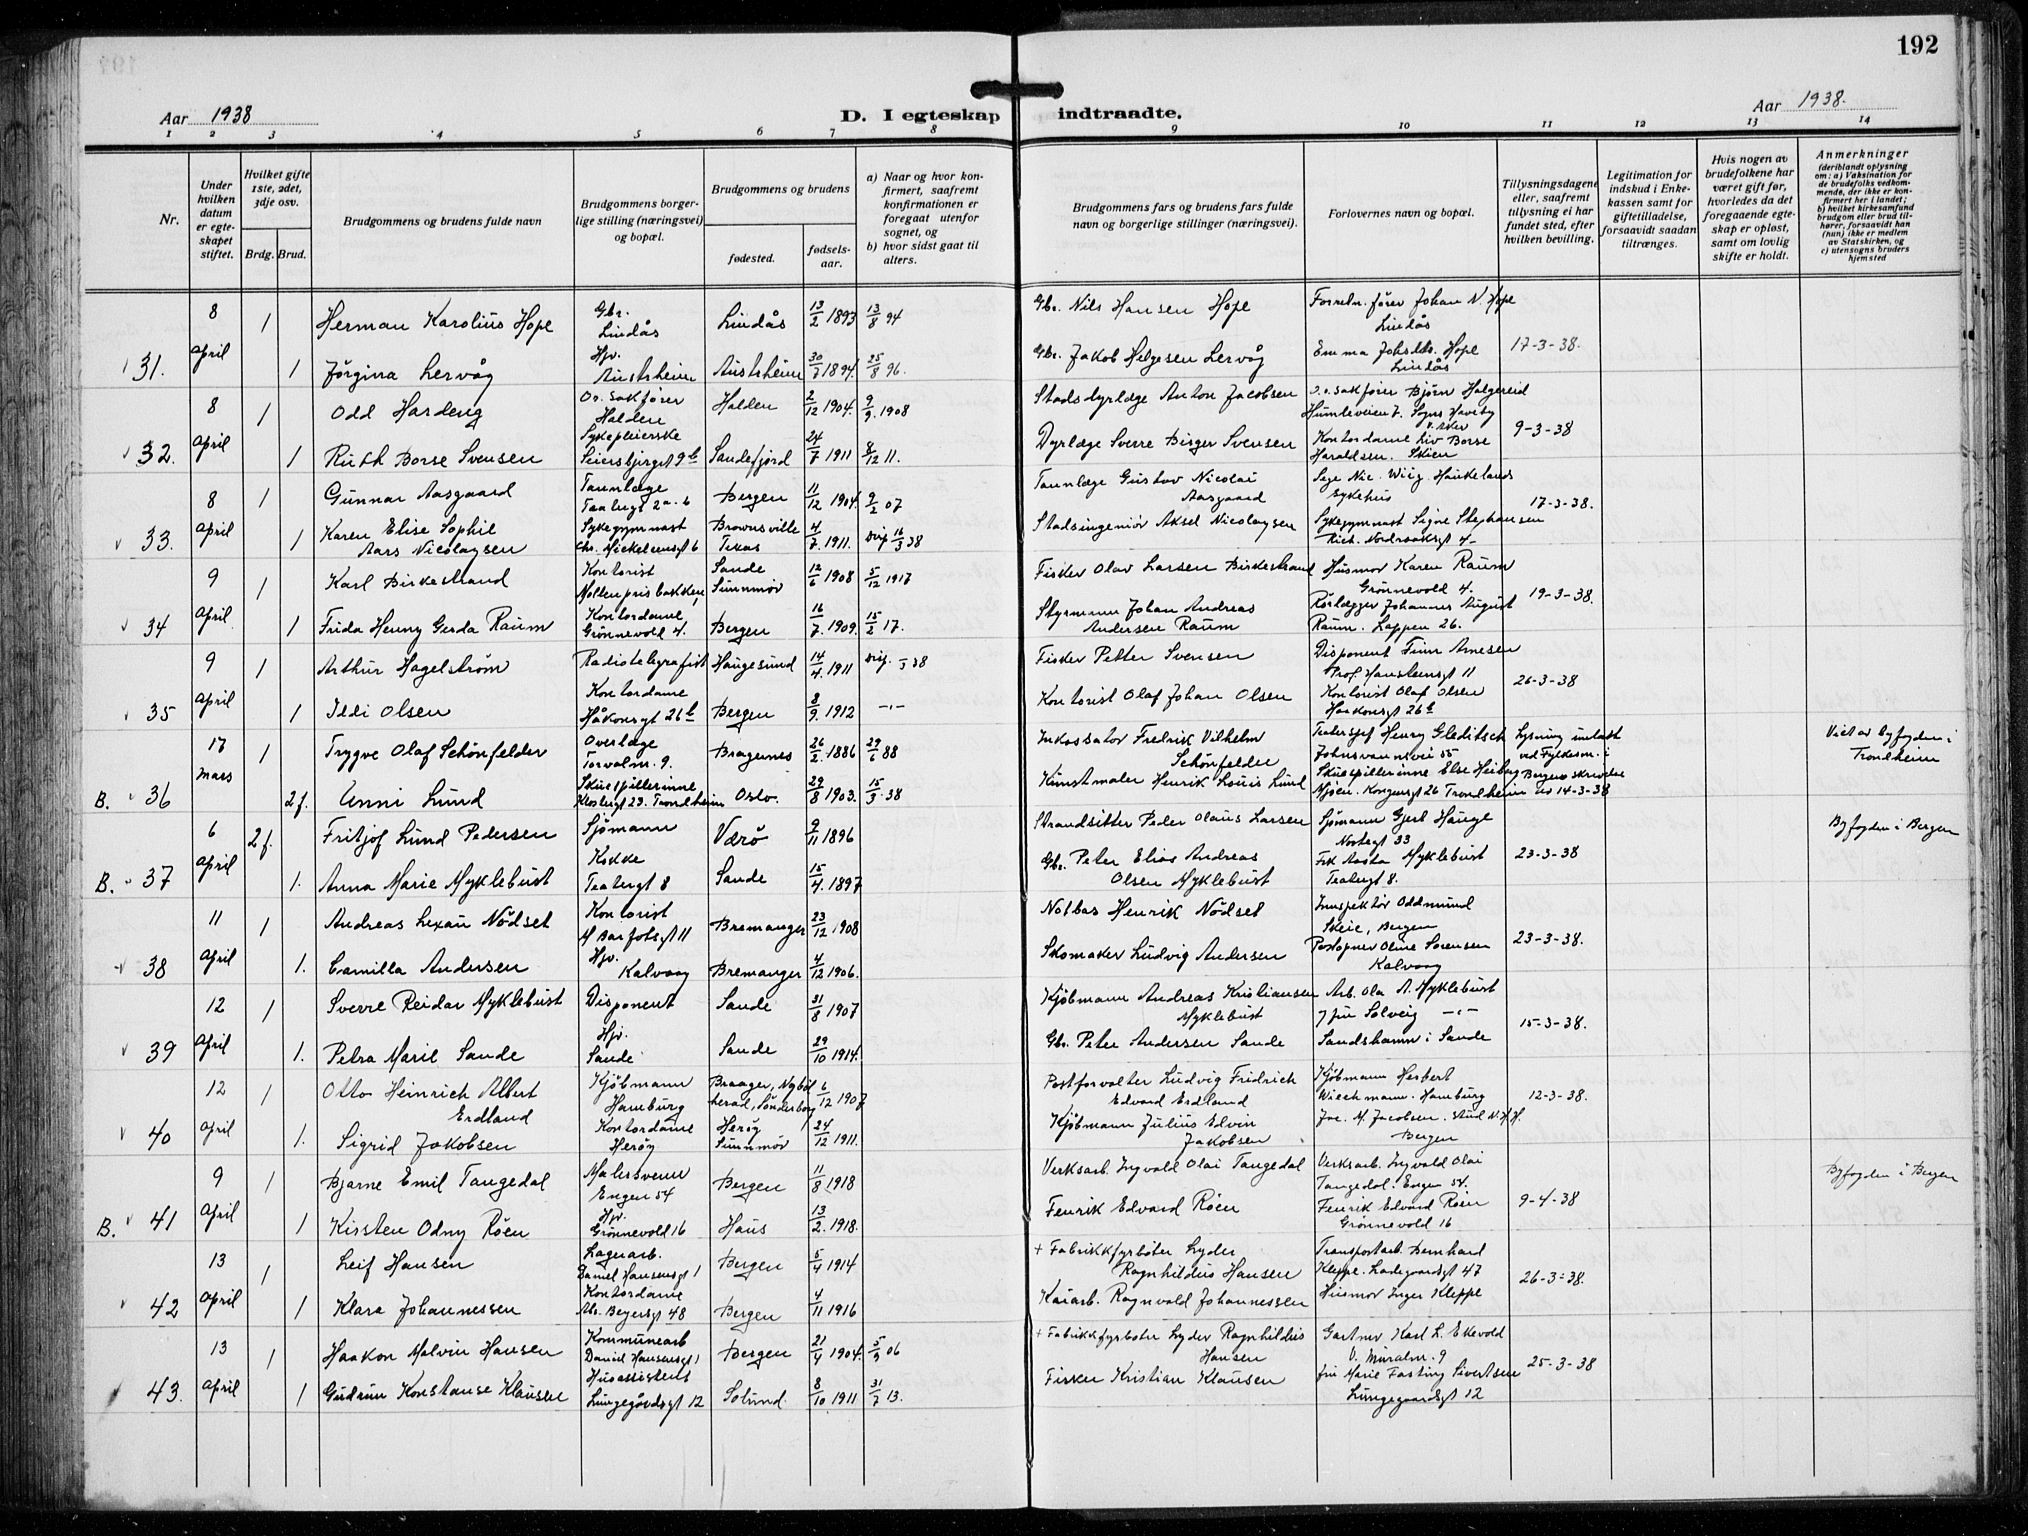 192
Aar 1938
D. I egteskap indtraadte.
Aar 1938.
1 2 3 4 5 6 7 8 9 10 11 12 13 14
Nr.
Under hvilken datum er egteskapet stiftet.
Hvilket gifte 1ste, 2det, 3dje osv.
Brdg. Brud.
Brudgommens og brudens fulde navn
Brudgommens borgerlige stilling (næringsvei) og bopæl.
Brudgommens og brudens
fødested.
fødselsaar.
a) Naar og hvor konfirmert, saafremt konfirmationen er foregaat utenfor sognet, og
b) hvor sidst gaat til alters.
Brudgommens fars og brudens fars fulde navn og borgerlige stillinger (næringsvei).
Forlovernes navn og bopæl.
Tillysningsdagene eller, saafremt tillysning ei har fundet sted, efter hvilken bevilling.
Legitimation for indskud i Enkekassen samt for giftetilladelse, forsaavidt saadan tiltrænges.
Hvis nogen av brudefolkene har været gift før, hvorledes da det foregaaende egteskap er opløst, samt om lovlig skifte er holdt.
Anmerkninger
(deriblandt oplysning om: a) Vaksination for de brudefolks vedkommende, der ikke er konfirmert her i landet;
b) hvilket kirkesamfund brudgom eller brud tilhører, forsaavidt han (hun) ikke er medlem av Statskirken, og
c) utensogns bruders hjemsted
8 1 Herman Karolius Hope Gbr. Lindås Lindås 13/2 1893 13/8 94 Gbr. Nils Hansen Hope Johan N. Hope Lindås
31. April 1 Jørgina Lervåg Hjv. Austrheim Austrheim 30/7 1894. 25/8 96. Gbr. Jakob Helgesen Lervåg Emma Hope Lindås 17-3-38.
8 1 Odd Hardeng O.r. sakfører Halden Halden 2/12 1904. 9/9. 1908 Stadsdyrlæge Anton Jacobsen O.r. sakfører Bjørn Halgereid Humleveien 7. V. Aker
32. April 1 Ruth Borse Svensen Sykepleierske Seiersbjerget 9b Sandefjord 24/7 1911 8/12 11. Dyrlæge Sverre Birger Svensen Kontordame Liv Borse Haraldsen. Skien 9-3-38
8 1 Gunnar Aasgaard Tannlæge 2a. 6 Bergen 11/12 1904. 9/2 07 Tannlæge Gustav Nicolai Aasgaard Nic. Wiig. Haukelands sykehus
33. April 1 Karen Elise Sophie Aars Nicolaysen Sykegymnast Chr. Mickelsensgt 6 Brownsville Texas 4/7. 1911. 16/3 38 Stadsingeniør Aksel Nicolaysen Sykegymnast Signe Stephansen Rich. Nordraaksgt 4 17-3-38.
9 1 Karl Birkestrand Kontorist Møllenprisbakken Sande Sunnmør 12/6 1908 5/12 1917 Fisker Olav Larsen Birkestrand Husmor Karen Raum Grønnevold 4.
34 April 1 Frida Henny Gerda Raum Kontordame Grønnevold 4. Bergen 16/7. 1909. 15/2 17. Styrmann Johan Andreas Andersen Raum Rørlægger Johannes August Raum. Lappen 26. 19-3-38.
9 1 Arthur Hagelstrøm Radiotelegrafist Haugesund 14/4. 1911 Fisker Petter Svensen Disponent Finn Arnesen Prof. Hansteensgt 11
35 April 1 Ildi Olsen Kontordame Håkonsgt 26b Bergen 8/9. 1912 -"- Kontorist Olaf Johan Olsen Kontorist Olaf Olsen Haakonsgt 26b 26-3-38
17 1 Trygve Olaf Schönfelder Overlæge Torvalm. 9. Bragernes 26/2. 1886 29/6 88 Inkassator Fredrik Vilhelm Schönfelder Teatersjef Henry Gleditsch Johnsvannvei 55 Lysning innladt ved Fylkesm. i Viet av byfogden i Trondheim
B. 36 Mars 2 f. Anni Lund Skuespillerinne Klostergt 23. Trondheim Oslo. 29/8 1903. 15/3. 38 Kunstmaler Henrik Louis Lund Skuespillerinne Else Heiberg Mjøen. Kongensgt 26 Trondheim Bergens skrivelse av 14-3-38
6 2 f. Fritjof Lund Pedersen Sjømann Værø 9/11 1896 Strandsitter Peder Olaus Larsen Sjømann Gjert Hauge Nostegt 33 Byfogden i Bergen
B. 37 April 1. Anna Marie Myklebust Kokke Teatergt 8 Sande 15/4. 1897 Gbr. Peter Elias Andreas Olsen Myklebust Frk Aasta Myklebust Teatergt 8. 23-3-38
11 1 Andreas Lexau Nødset Kontorist M Barfotsgt 11 Bremanger 23/12 1908 Notbas Henrik Nødset Inspektør Oddmund Skeie, Bergen
38 April 1. Camilla Andersen Hjv. Kalvaag Bremanger 4/12 1906. Skomaker Ludvig Andersen Postopner Oline Sørensen Kalvaag 23-3-38.
12 1 Sverre Reidar Myklebust Disponent Sande 31/8 1907 Kjøbmann Andreas Kristiansen Myklebust Arb. Ola A. Myklebust
39 April 1. Petra Marie Sande Hjv. Sande Sande 29/10 1914. Gbr. Peter Andersen Sande fru Solveig -"- Sandshamn i Sande 15-3-38.
12 1 Otto Heinrich Albert Erdland Kjøbmann Hamburg Braager, herad, Sønderborg 6/12 1907 Postforvalter Ludvig Fridrich Edvard Erdland Kjøbmann Herbert Wiechmann. Hamburg
40 April 1. Sigrid Jakobsen Kontordame Herøy Herøy Sunnmør 24/12 1911. Kjøbmann Julius Edvin Jakobsen M. Jacobsen. Stud N.H.H. Bergen 12-3-38.
9 1 Bjarne Emil Tangedal Malersvenn Engen 54 Bergen 11/8 1918 Verksarb. Ingvald Olai Tangedal Verksarb. Ingvald Olai Tangedal. Engen 54. Byfogden i Bergen
B. 41 April 1 Kirsten Odny Røen Hjv. Grønnevold 16 Haus 13/2. 1918. Fenrik Edvard Røen Fenrik Edvard Røen Grønnevold 16 9-4-38
13 1 Leif Hansen Lagerarb. Daniel Hansensgt 1 Bergen 5/4 1914 + Fabrikkfyrbøter Lyder Ragnhildius Hansen Transportarb. Bernhard Kleppe. Ladegaardsgt 47
42 April 1 Klara Johannessen Kontordame Abs. Beyersgt 48 Bergen 4/11 1916 Kaiarb. Ragnvald Johannessen Husmor Inger Kleppe 26-3-38.
13 1 Haakon Malvin Hansen Kommunearb Daniel Hansensgt 1 Bergen 21/4 1904. 5/9 06 + Fabrikkfyrbøter Lyder Ragnhildius Hansen Gartner Karl L. Ekevold V. Muralm. 9
43. April 1 Gudrun Konstanse Klausen Husassistent Lungegårdsgt 12 Solund. 8/10 1911 31/7 13. Fisker Kristian Klausen fru Marie Fasting Sivertsen Lungegaardsgt 12 25-3-38